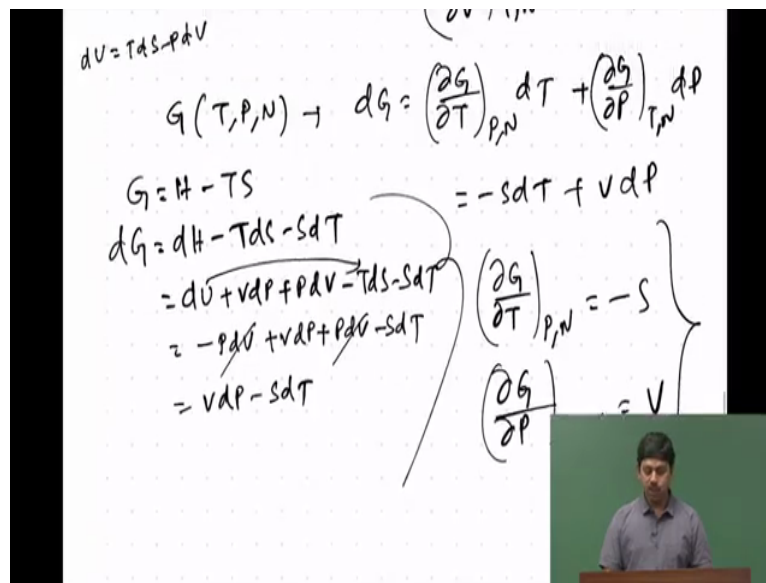 dU = TdS - PdV
G(T,P,N) → dG = (∂G/∂T)_{P,N} dT + (∂G/∂P)_{T,N} dP
= -SdT + VdP
G = H - TS
dG = dH - TdS - SdT
= dU + VdP + PdV - TdS - SdT
= -PdV + VdP + PdV - SdT
= VdP - SdT
(∂G/∂T)_{P,N} = -S
(∂G/∂P) = V